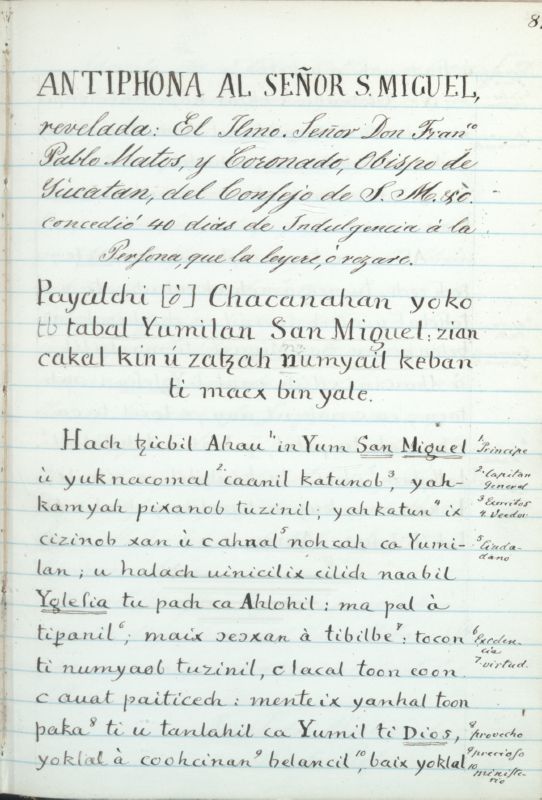 8
ANTIPHONA AL SEÑOR S. MIGUEL,
revelada: El Ilmo. Señor Don Fran.co
Pablo Matos, y Coronado, Obispo de
Yucatan, del Consejo de S. M. &c.
concedió 40 dias de Indulgencia á la
Persona, que la leyere, ó rezare.
Payalchi [ò] Chacanahan yoko
tabal Yumilan San Miguel: zian
cakal kin ú zatzah numyail keban
ti macx bin yale.
Hach tzicbil Ahau 1 in Yum San Miguel
ù yuknacomal 2 caanil katunob 3, yah-
kamyah pixanob tuzinil; yahkatun 4 ix
cizinob xan ù cahnal 5 nohcah ca Yumi-
lan; u halach uinicilix cilich naabil
Yglesia tu pach ca Ahlohil: ma pal à
tipanil 6; maix ɔeɔxan à tibilbe 7: tocon
ti numyaob tuzinil, c lacal toon coon
c auat paiticech: menteix yanhal toon
paka 8 ti u tanlahil ca Yumil ti Dios,
yoklal à coohcinan 9 belancil 10, baix yoklal
1 Principe
2 Capitan
General
3 Exercitos
4 Veedor
5 Ciuda-
dano
6 Exceden-
cia
7 virtud.
8 provecho
9 precioso
10 ministe-
rio